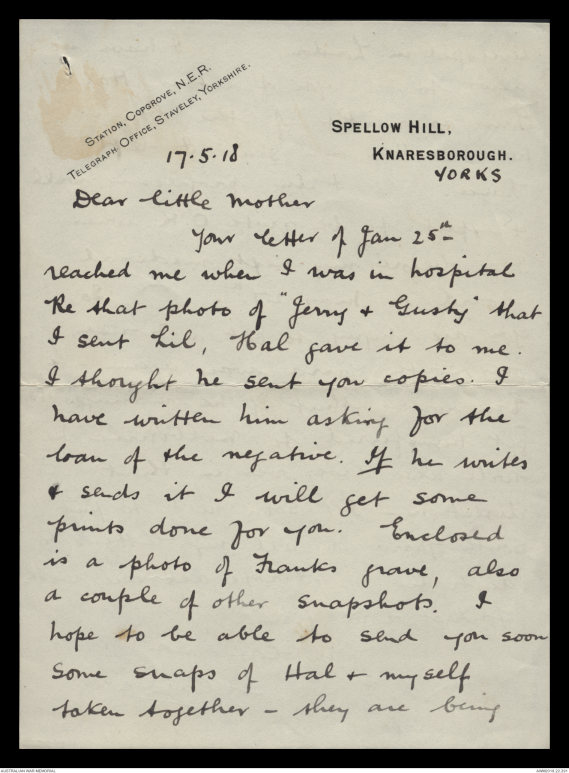 STATION, COPGROVE, N.E.R.
TELEGRAPH OFFICE, STAVELEY, YORKSHIRE.
SPELLOW HILL,
KNARESBOROUGH.
YORKS
17.5.18
Dear little Mother
Your letter of Jan 25th
reached me when I was in hospital
Re that photo of "Jerry & Gusty" that
I sent Lil, Hal gave it to me.
I thought he sent you copies. I
have written him asking for the
loan of the negative. If he writes
& sends it I will get some
prints done for you. Enclosed
is a photo of Franks grave, also
a couple of other snapshots. I
hope to be able to send you soon
some snaps of Hal & myself
taken together - they are being
AUSTRALIAN WAR MEMORIAL